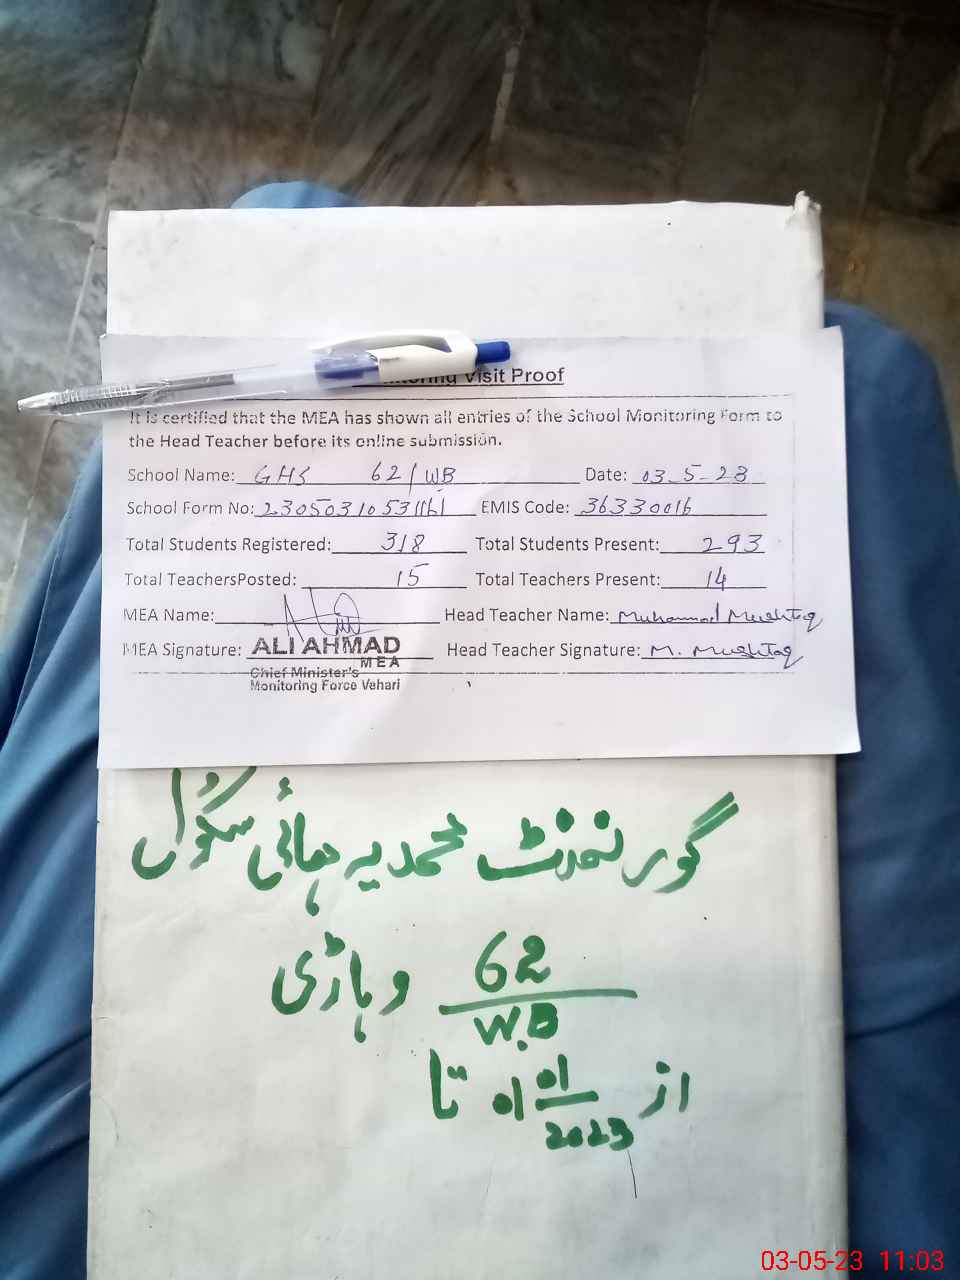 Visit Proof
It is certified that the MEA has shown all entries of the School Monitoring Form to
the Head Teacher before its online submission.
School Name: GHS 62/WB Date: 03-5-23
School Form No: EMIS Code: 36330016
Total Students Registered: 318 Total Students Present: 293
Total TeachersPosted: 15 Total Teachers Present: 14
MEA Name: Head Teacher Name: Muhammad Mushtaq
MEA Signature: ALI AHMAD Head Teacher Signature: M. Mushtaq
MEA
Chief Minister's
Monitoring Force Vehari
گورنمنٹ محمدیہ ہائی سکول
62
W.B وہاڑی
از 01/01/2023 تا
03-05-23 11:03